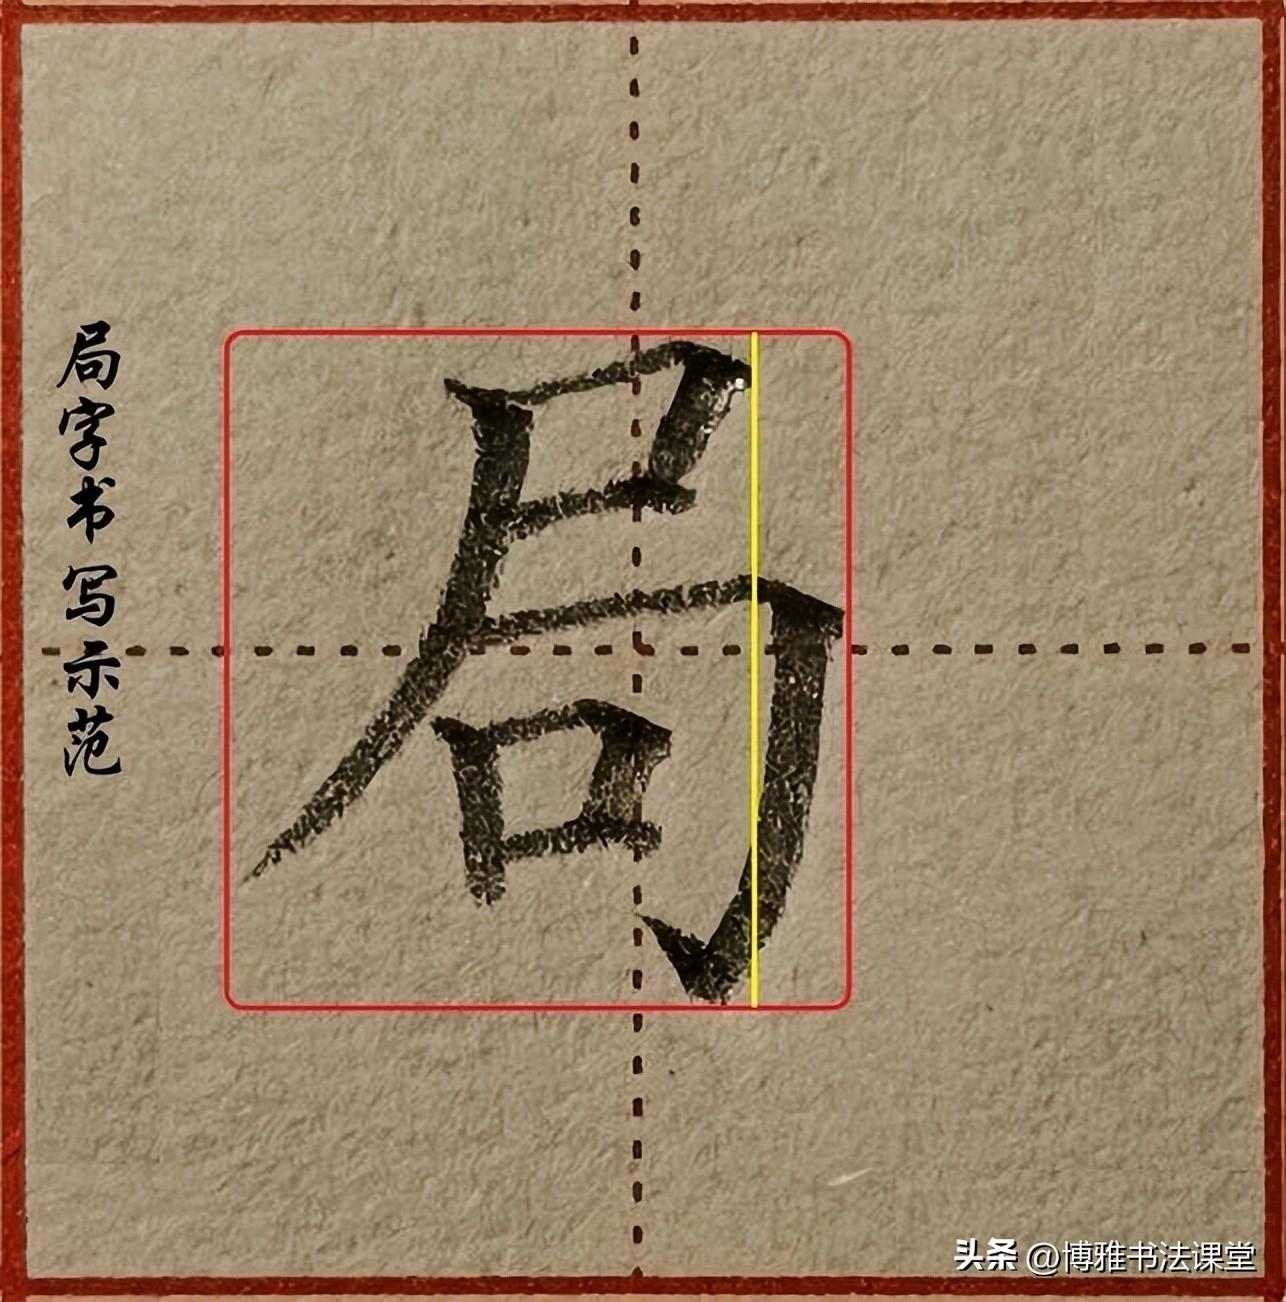 局字书写示范
局
头条 @博雅书法课堂